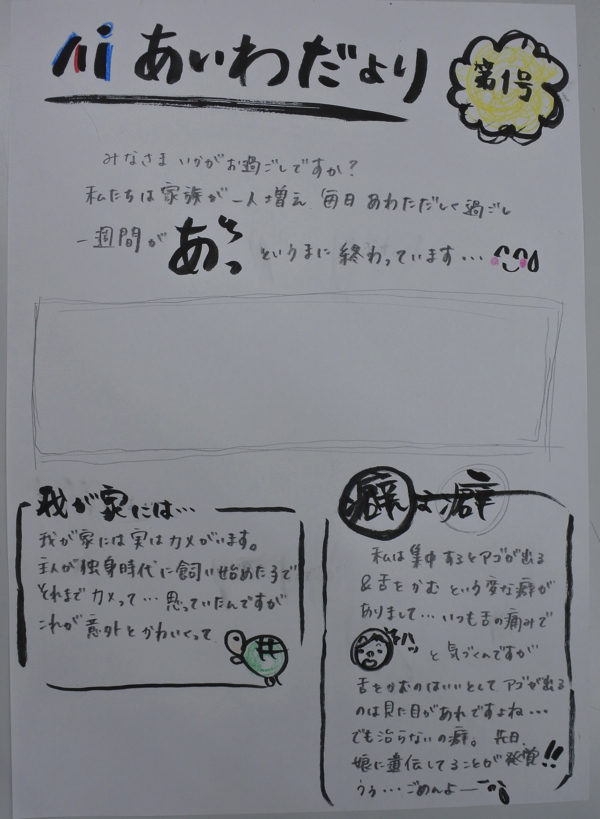 あいわだより
第1号
みなさまいかがお過ごしですか?
私たちは家族が一人増え 毎日 あわただしく過ごし
一週間が あっ というまに 終わっています・・・
我が家には…
我が家には実はカメがいます。
主人が独身時代に飼い始めた子で
それまでカメって…思っていたんですが
これが意外とかわいくって
癖は癖
私は集中するとアゴが出る
&舌をかむという変な癖が
ありまして…いつも舌の痛みで
ハッ と気づくんですが
舌をかむのはいいとしてアゴが出る
のは見た目があれですよね…
でも治らないの癖。先日、
娘に遺伝してることが発覚!!
うぅ…ごめんよー